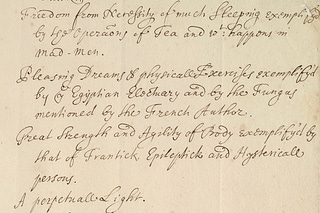 Freedom from Necessity of much Sleeping exemplify'd
by the Operations of Tea and wt happens in
Mad-men.
Pleasing Dreams & physicall Exercises exemplify'd
by ye Egyptian Electuary and by the Fungus
mentioned by the French Author.
Great Strength and Agility of Body exemplify'd by
that of Frantick Epileptick and Hystericall
persons.
A perpetuall Light.